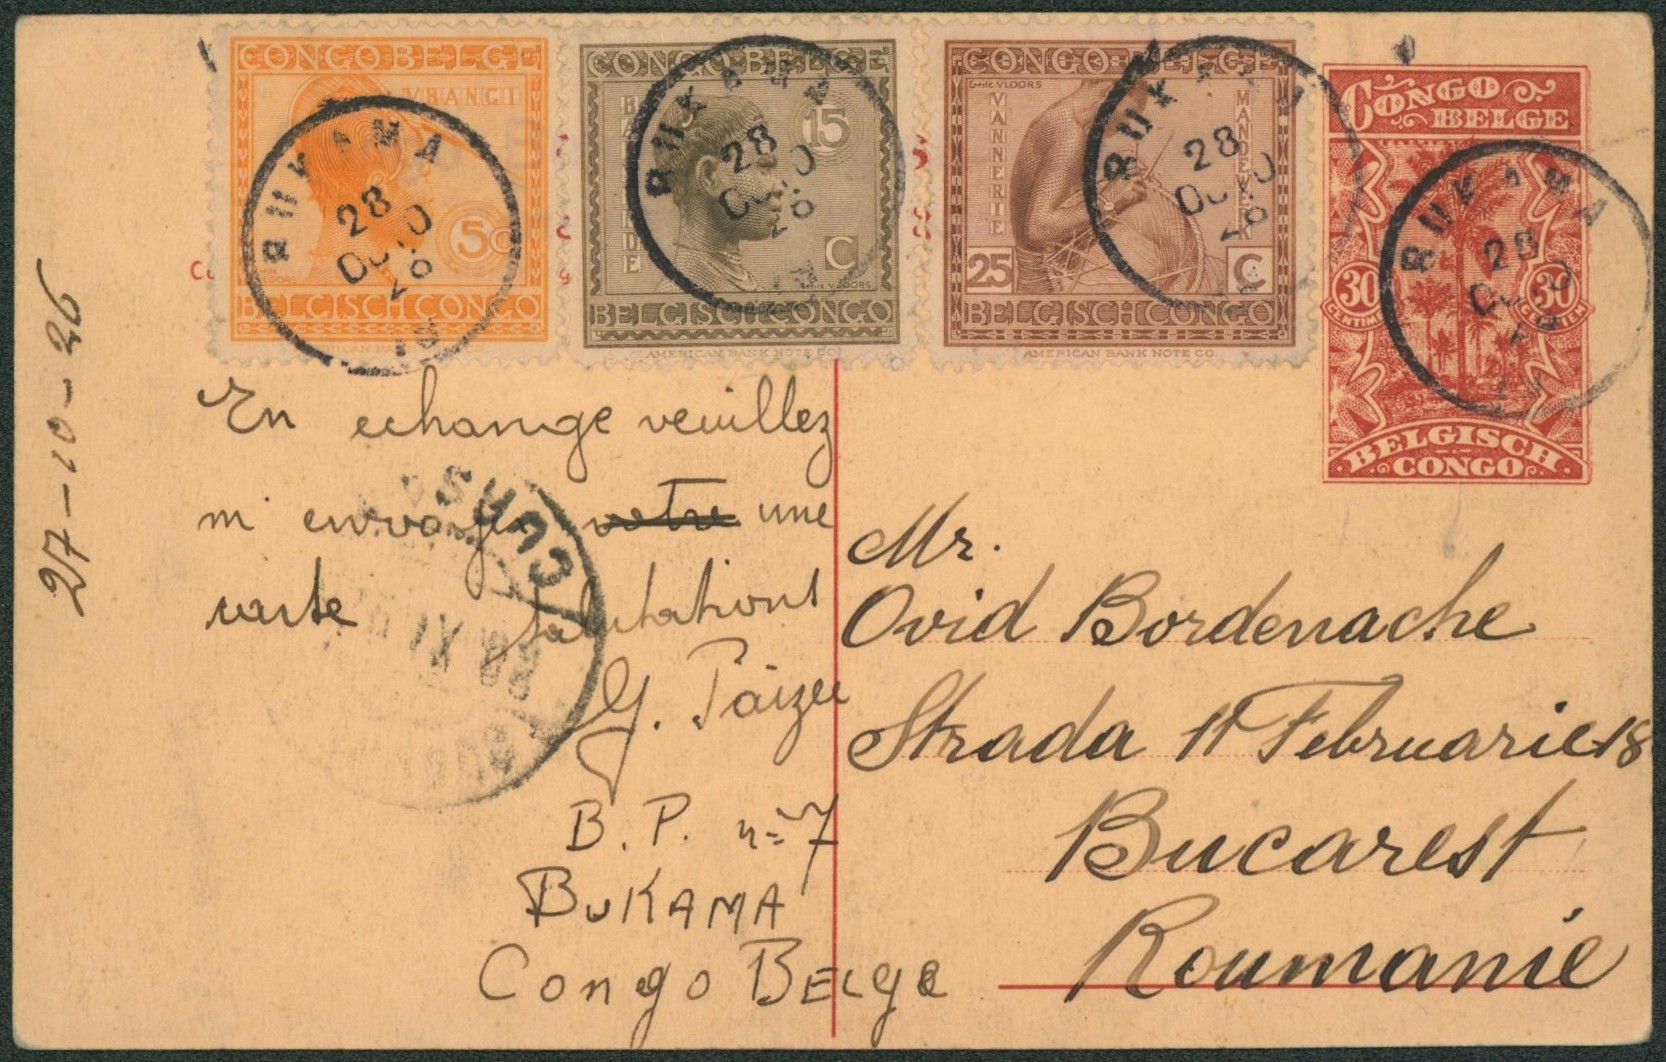 CONGO BELGE
UBANGI
5c
BELGISCH CONGO
CONGO BELGE
15
C
EMILE VLOORS
BELGISCH CONGO
AMERICAN BANK NOTE CO
CONGO BELGE
EMILE VLOORS
VANNERIE
MANDENMAKERIJ
25
C
BELGISCH CONGO
AMERICAN BANK NOTE CO
CONGO
BELGE
30
30
CENTIMES
CENTIEM
BELGISCH
CONGO
BUKAMA
28
26
BUKAMA
28
26
BUKAMA
28
26
BUKAMA
28
26
27-10-26
En echange veuillez
m'envoyer votre une
carte salutations
G. Paizee
B.P. n=7
BUKAMA
Congo BELgE
CURSA
Mr.
Ovid Bordenache
Strada 11 Februarie 18
Bucarest
Roumanie